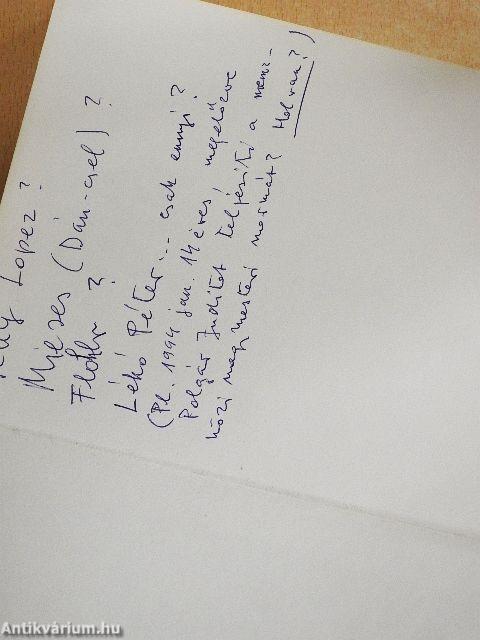 Lopez?
Mieses (Dán-csel)?
Flohr?
Lékó Péter... csak ennyi?
(Pl. 1994 jan. 14 éves, megelőzve
Polgár Juditot teljesíti a nemz-
közi nagymesteri normát? Hol van?)
Antikvárium.hu